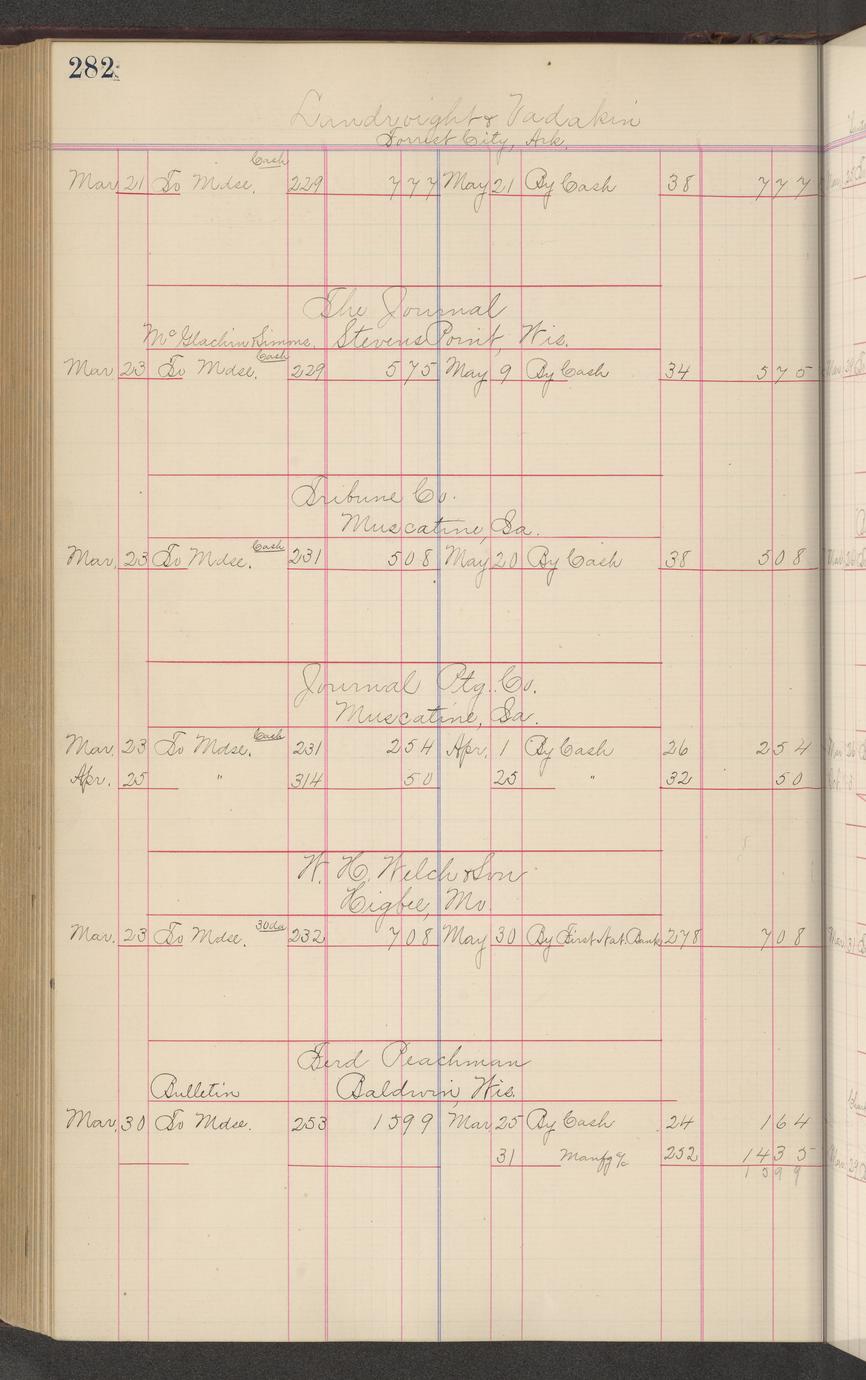 282
Landvoight & Vadakin
Forrest City, Ark.
Cash
Mar 21 To Mdse. 229 7 77 May 21 By Cash 38 7 77
The Journal
McGlachin & Simms. Stevens Point, Wis.
Cash
Mar 23 To Mdse. 229 5 75 May 9 By Cash 34 5 75
Tribune Co.
Muscatine, Ia.
Cash
Mar. 23 To Mdse. 231 5 08 May 20 By Cash 38 5 08
Journal Ptg. Co.
Muscatine, Ia.
Cash
Mar. 23 To Mdse. 231 2 54 Apr. 1 By Cash 26 2 54
Apr. 25 " 314 50 25 " 32 50
W. H. Welch & Son
Higbee, Mo.
30da
Mar. 23 To Mdse. 232 7 08 May 30 By First Nat. Bank 278 7 08
Ferd Peachman
Bulletin Baldwin, Wis.
Mar. 30 To Mdse. 253 15 99 Mar 25 By Cash 24 1 64
31 Manfg a/c 252 14 35
15 99